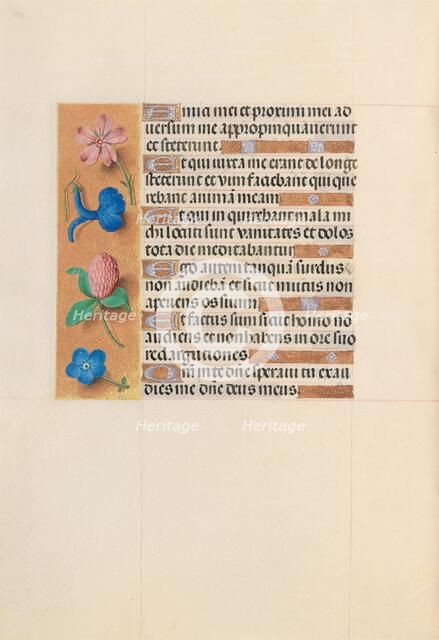 Amici mei et proximi mei ad
uersum me appropinquauerunt
et steterunt.
Et qui iuxta me erant de longe
steterunt et vim faciebant qui que
rebant animā meam
Et qui inquirebant mala mi
chi locuti sunt vanitates et dolos
tota die meditabantur
Ego autem tanquā surdus
non audiebā et sicut mutus non
aperiens os suum
Et factus sum sicut homo nō
audiens et non habens in ore suo
redargutiones
Qm̄ in te dn̄e speraui tu exau
dies me dn̄e deus meus
Heritage Heritage
Heritage Heritage
Heritage Heritage